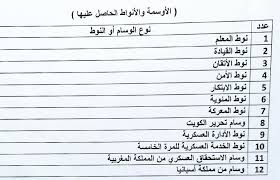 ( الأوسمة والأنواط الحاصل عليها )
عدد نوع الوسام أو النوط
1 نوط المعلم
2 نوط القيادة
3 نوط الأتقان
4 نوط الأمن
5 نوط الابتكار
6 نوط المئوية
7 نوط المعركة
8 وسام تحرير الكويت
9 نوط الأدارة العسكرية
10 نوط الخدمة العسكرية للمرة الخامسة
11 وسام الاستحقاق العسكري من المملكة المغربية
12 وسام من مملكة أسبانيا